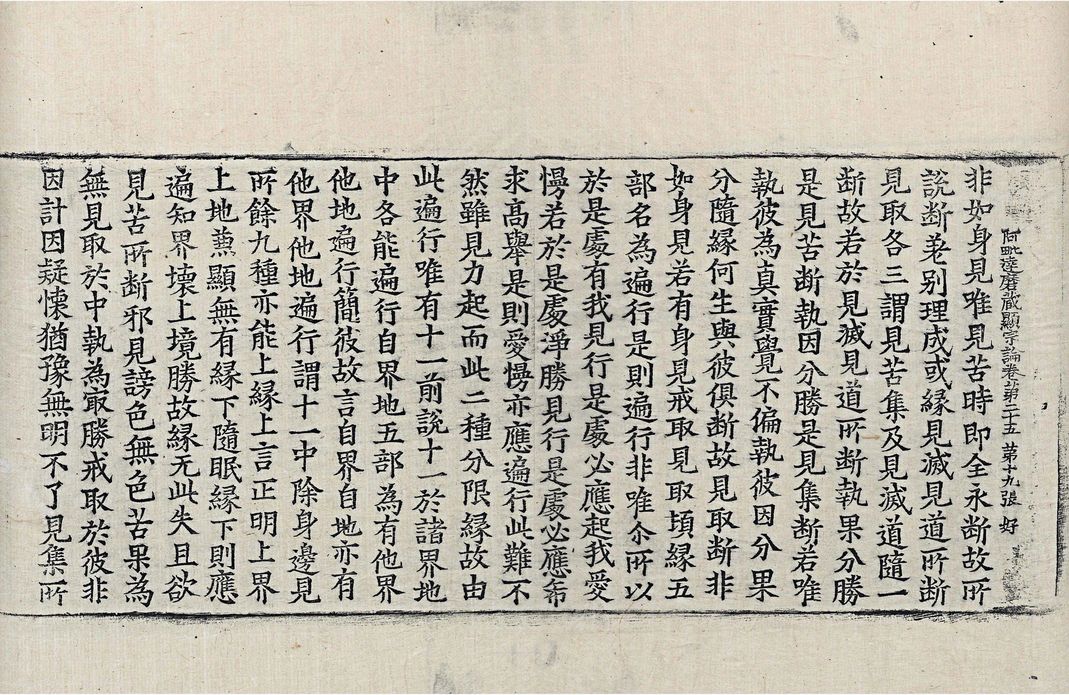 阿毗達磨藏顯宗論卷第二十五 第十九張 好
非如身見唯見苦時即全永斷故所
說斷差別理成或緣見滅見道所斷
見取各三謂見苦集及見滅道隨一
斷故若於見滅見道所斷執果分勝
是見苦斷執因分勝是見集斷若唯
執彼為真實覺不偏執彼因分果
分隨緣何生與彼俱斷故見取斷非
如身見若有身見戒取見取頓緣五
部名為遍行是則遍行非唯尒所以
於是處有我見行是處必應起我愛
慢若於是處淨勝見行是處必應希
求高舉是則愛慢亦應遍行此難不
然雖見力起而此二種分限緣故由
此遍行唯有十一前說十一於諸界地
中各能遍行自界地五部為有他界
他地遍行簡彼故言自界自地亦有
他界他地遍行謂十一中除身邊見
所餘九種亦能上緣上言正明上界
上地兼顯無有緣下隨眠緣下則應
遍知界壞上境勝故緣无此失且欲
見苦所斷邪見謗色無色苦果為
無見取於中執為㝡勝戒取於彼非
因計因疑懷猶豫無明不了見集所